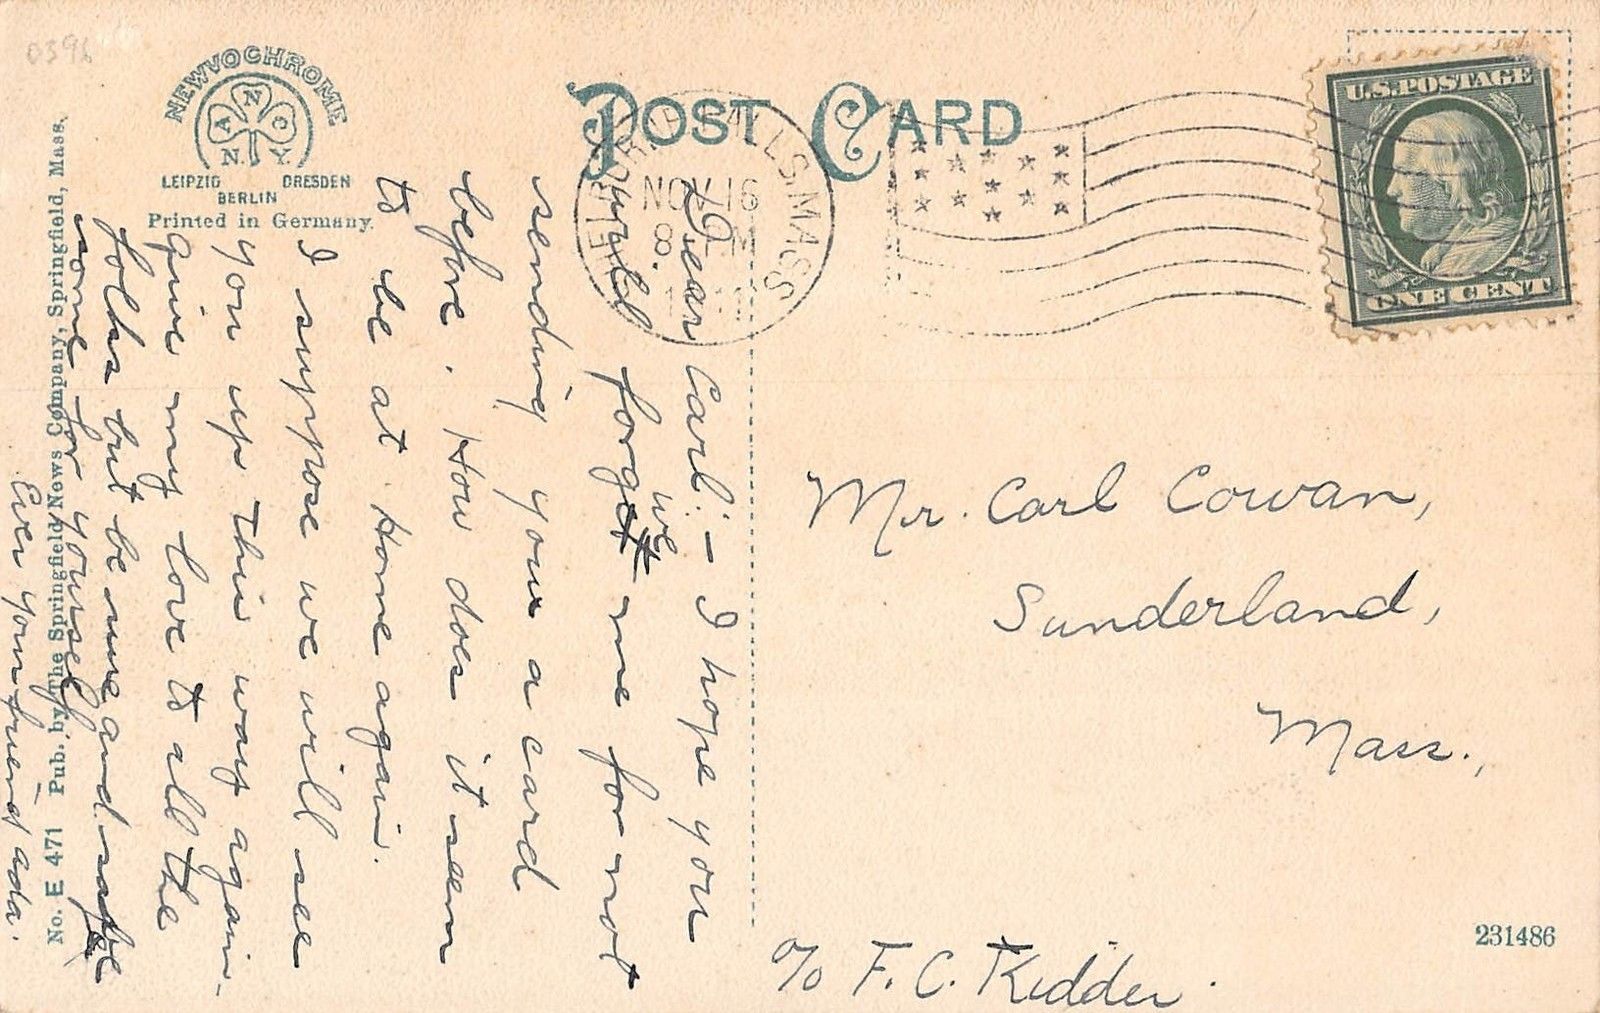 0396
NEWVOCHROME
A N C O
N. Y.
LEIPZIG DRESDEN
BERLIN
Printed in Germany.
POST CARD
FALLS. MASS
NOV 16
8.
U.S. POSTAGE
ONE CENT
Dear Carl:- I hope you
would forget we me for not
sending you a card
before. How does it seem
to be at Home again.
I suppose we will see
you up this way again.
Give my love to all the
folks but be sure and save
some for yourself
Ever your friend Ada.
No. E 471 Pub. by The Springfield News Company, Springfield, Mass.
Mr. Carl Cowan,
Sunderland,
Mass.,
c/o F. C. Kidder.
231486